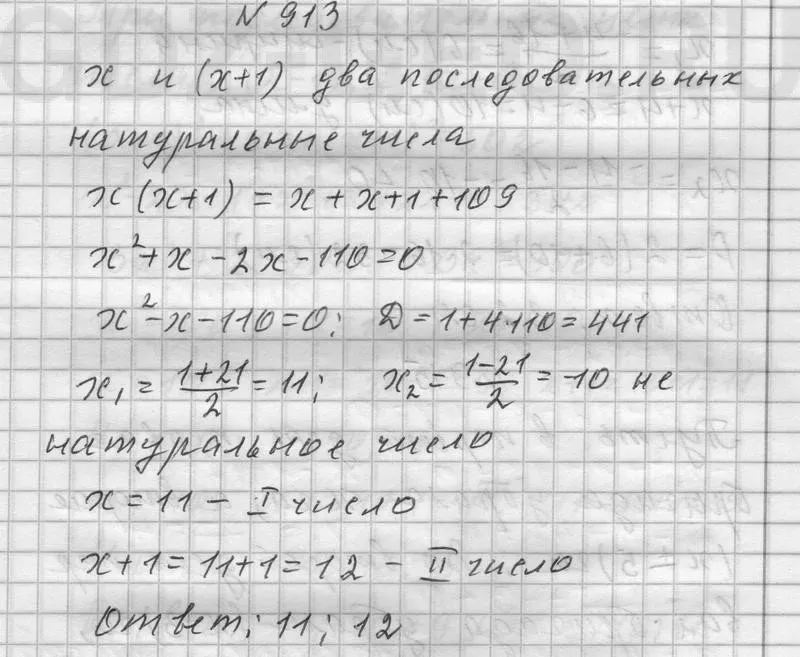 N 913
x и (x+1) два последовательных
натуральные числа
x(x+1) = x+x+1+109
x²+x-2x-110=0
x²-x-110=0; D=1+4·110=441
x₁ = (1+21)/2 = 11; x₂ = (1-21)/2 = -10 не
натуральное число
x = 11 - I число
x+1 = 11+1 = 12 - II число
Ответ; 11; 12